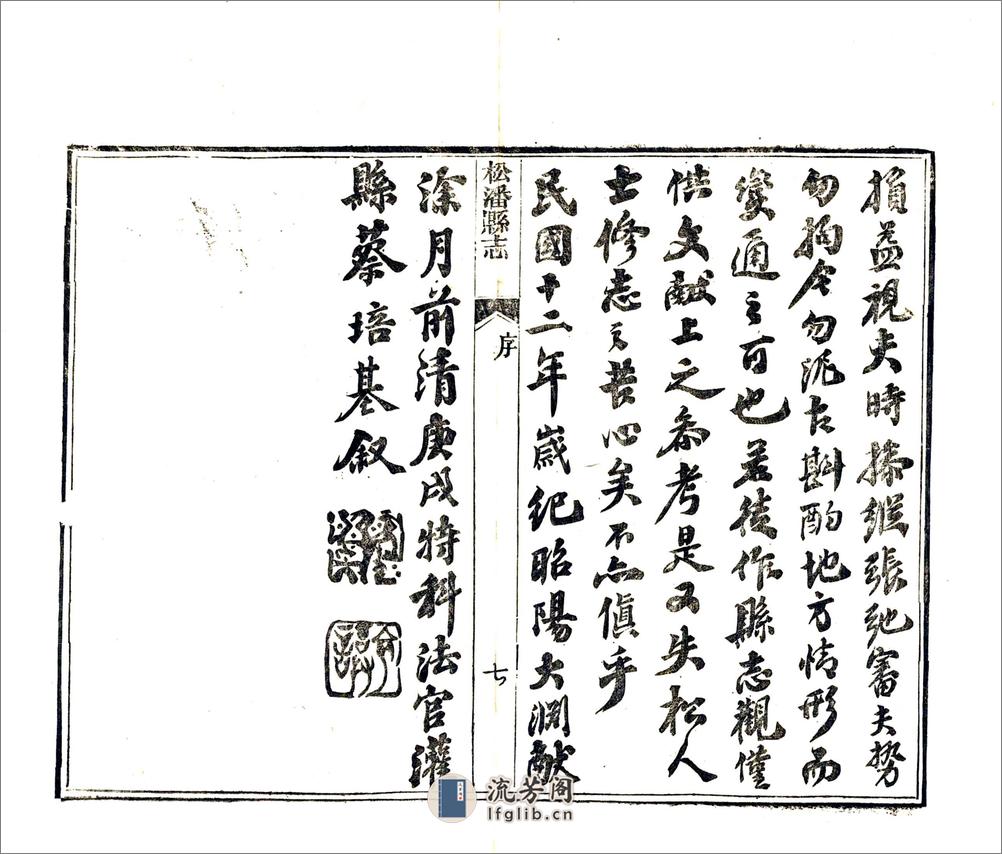 損益視夫時操縱張弛審夫勢
勿拘今勿泥古斟酌地方情形而
變通之可也若徒作縣志觀僅
供文獻上之叅考是又失松人
士修志之苦心矣不亦傎乎
民國十二年歲紀昭陽大淵献
松潘縣志
序
七
涂月前清庚戌特科法官灌
縣蔡培基叙
流芳阁
lfglib.cn